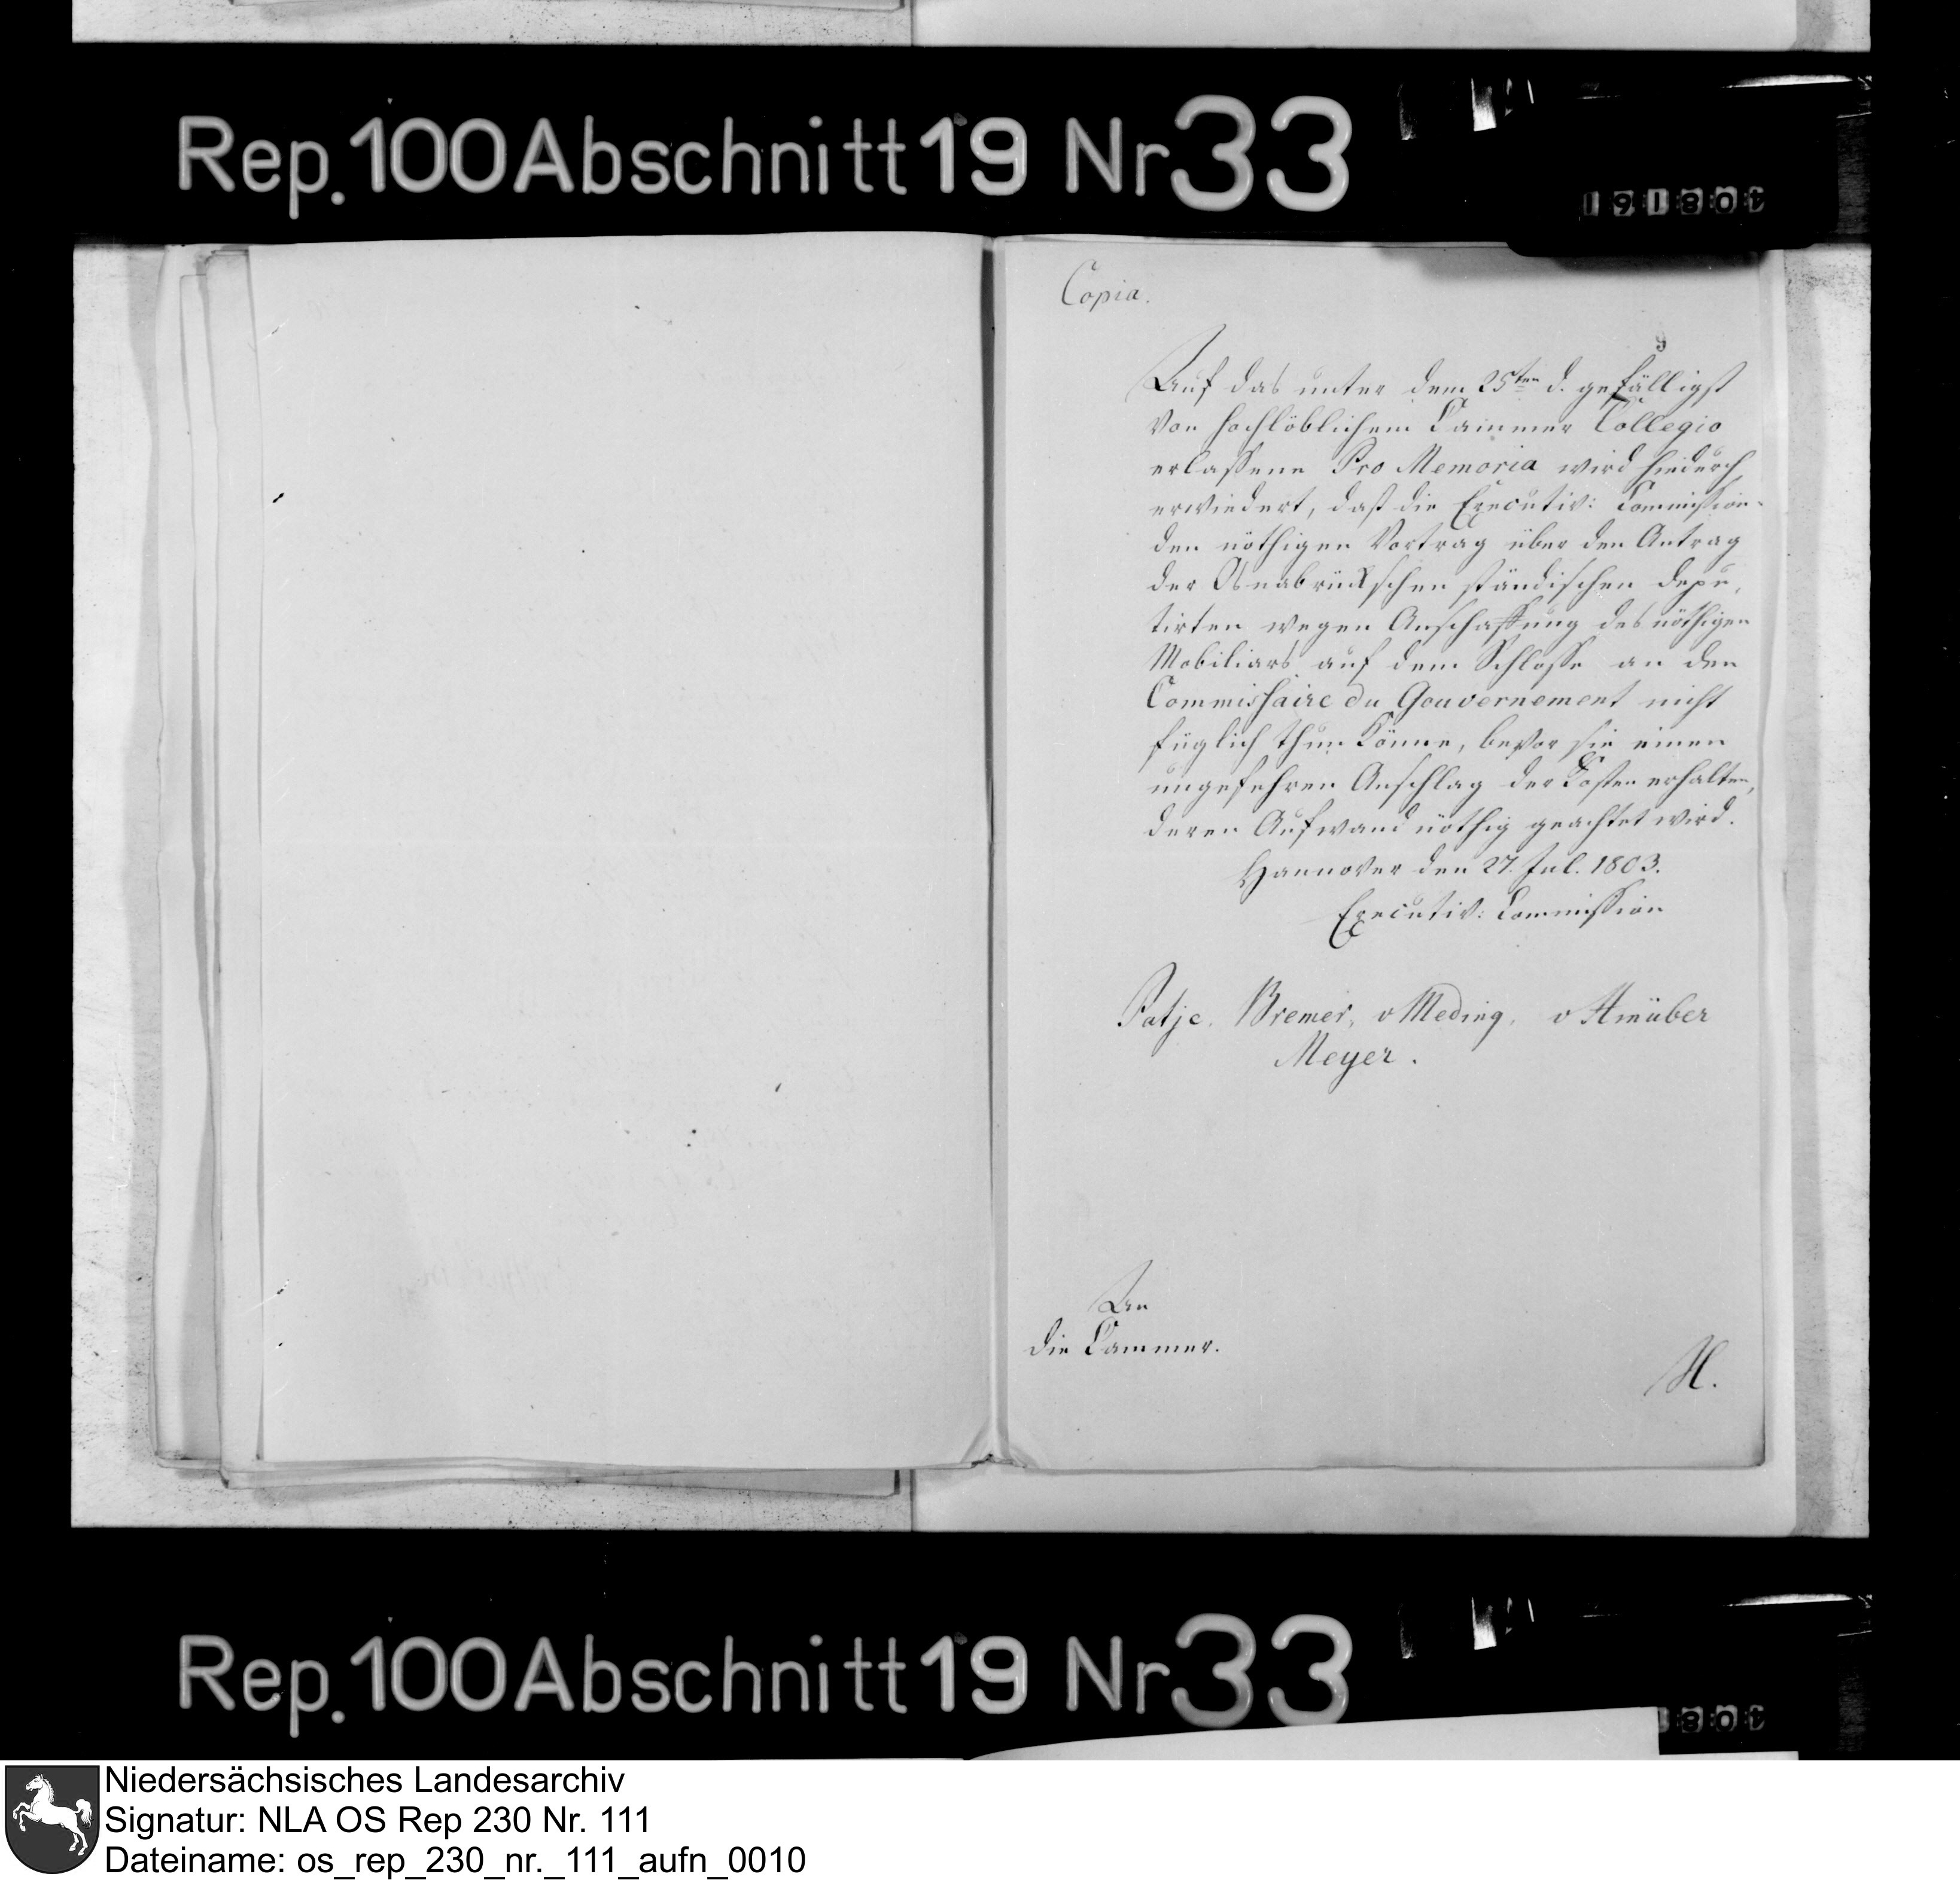 Rep. 100 Abschnitt 19 Nr 33
Copia.
9
Auf das unter dem 25ten d. gefälligst
von hochlöblichem Cammer Collegio
erlassene Pro Memoria wird hiedurch
erwiedert, daß die Executiv: Commission
den nöthigen Vortrag über den Antrag
der Osnabrückschen ständischen Depu,
tirten wegen Anschaffung des nöthigen
Mobiliars auf dem Schlosse an den
Commissaire du Gouvernement nicht
füglich thun könne, bevor sie einen
ungefehren Anschlag der Kosten erhalten,
deren Aufwand nöthig geachtet wird.
Hannover den 27. Jul. 1803.
Executiv: Commission
Patje. Bremer, v Meding, v Hinüber
Meyer.
An
die Cammer.
Rep. 100 Abschnitt 19 Nr 33
Niedersächsisches Landesarchiv
Signatur: NLA OS Rep 230 Nr. 111
Dateiname: os_rep_230_nr._111_aufn_0010